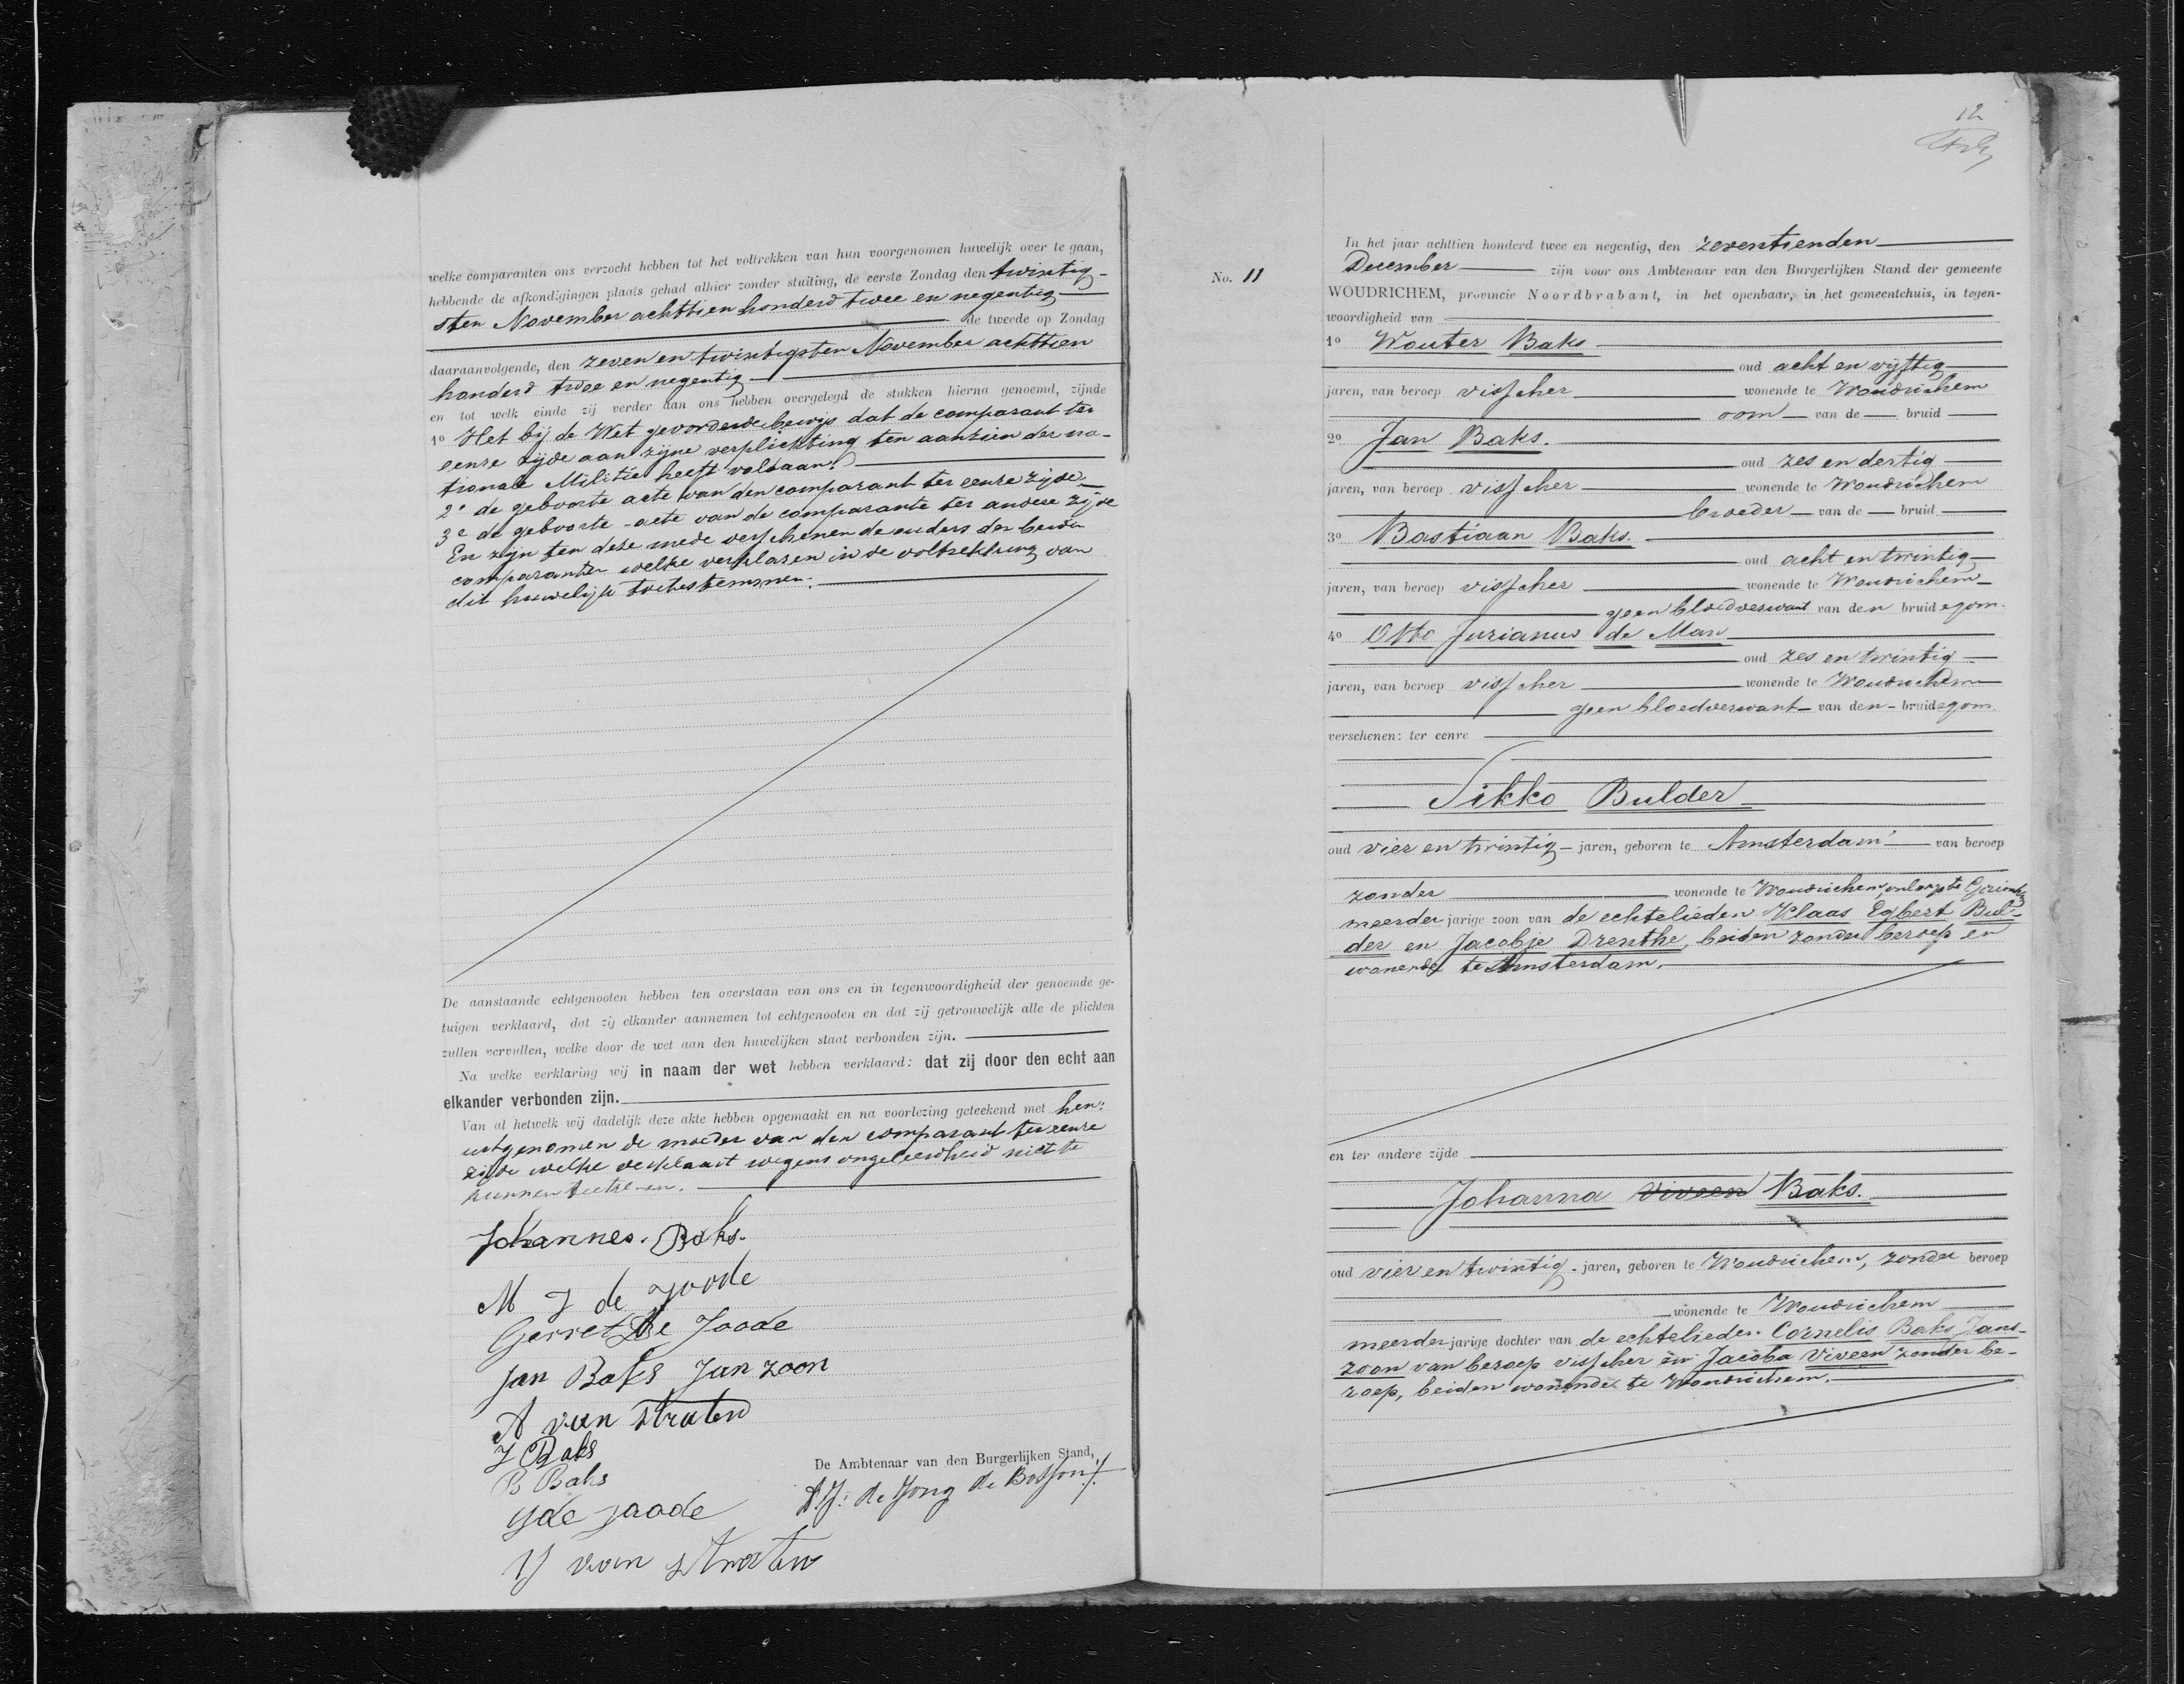 welke comparanten ons verzocht hebben tot het voltrekken van hun voorgenomen huwelijk over te gaan,
hebbende de afkondigingen plaats gehad alhier zonder stuiting, de eerste Zondag den twintig-
sten November achttien honderd twee en negentig
de tweede op Zondag
daaraanvolgende, den zeven en twintigsten November achttien
honderd twee en negentig
en tot welk einde zij verder aan ons hebben overgelegd de stukken hierna genoemd, zijnde
1o Het bij de Wet gevorderde bewijs dat de comparant ter
eenre zijde aan zijne verplichting ten aanzien der na-
tionale Militie heeft voldaan.
2e de geboorte acte van den comparant ter eenre zijde.
3e de geboorte-acte van de comparante ter andere zijde
En zijn ten deze mede verschenen de ouders der beide
comparanten welke verklaren in de voltrekking van
dit huwelijk toetestemmen.
De aanstaande echtgenooten hebben ten overstaan van ons en in tegenwoordigheid der genoemde ge-
tuigen verklaard, dat zij elkander aannemen tot echtgenooten en dat zij getrouwelijk alle de plichten
zullen vervullen, welke door de wet aan den huwelijken staat verbonden zijn.
Na welke verklaring wij in naam der wet hebben verklaard: dat zij door den echt aan
elkander verbonden zijn.
Van al hetwelk wij dadelijk deze akte hebben opgemaakt en na voorlezing geteekend met hen:
uitgenomen de moeder van den comparant ter eenre
zijde welke verklaart wegens ongeleerdheid niet te
kunnen teekenen.
Johannes. Baks.
M J de Joode
Gerret De Joode
Jan Baks Jan zoon
A van Straten
J Baks
B Baks
De Ambtenaar van den Burgerlijken Stand,
de Jong de
G de Joode
van Straten
12
No. 11
In het jaar achttien honderd twee en negentig, den zeventienden
December zijn voor ons Ambtenaar van den Burgerlijken Stand der gemeente
WOUDRICHEM, provincie Noordbrabant, in het openbaar, in het gemeentehuis, in tegen-
woordigheid van
1o Wouter Baks
oud acht en vijftig
jaren, van beroep visscher wonende te Woudrichem
oom van de bruid
2o Jan Baks.
oud zes en dertig
jaren, van beroep visscher wonende te Woudrichem
broeder van de bruid
3o Bastiaan Baks.
oud acht en twintig
jaren, van beroep visscher wonende te Woudrichem
geen bloedverwant van den bruidegom.
4o Otto Jurianus de Man
oud zes en twintig
jaren, van beroep visscher wonende te Woudrichem
geen bloedverwant van den bruidegom.
verschenen: ter eenre
Sikko Bulder
oud vier en twintig jaren, geboren te Amsterdam van beroep
zonder wonende te Woudrichem, onlangs te
meerderjarige zoon van de echtelieden Klaas Egbert Bul-
der en Jacobje Drenthe, beiden zonder beroep en
wonende te Amsterdam.
en ter andere zijde
Johanna Viveen Baks.
oud vier en twintig jaren, geboren te Woudrichem, zonder beroep
wonende te Woudrichem
meerderjarige dochter van de echtelieden Cornelis Baks Jans-
zoon van beroep visscher en Jacoba Viveen zonder be-
roep, beiden wonende te Woudrichem.